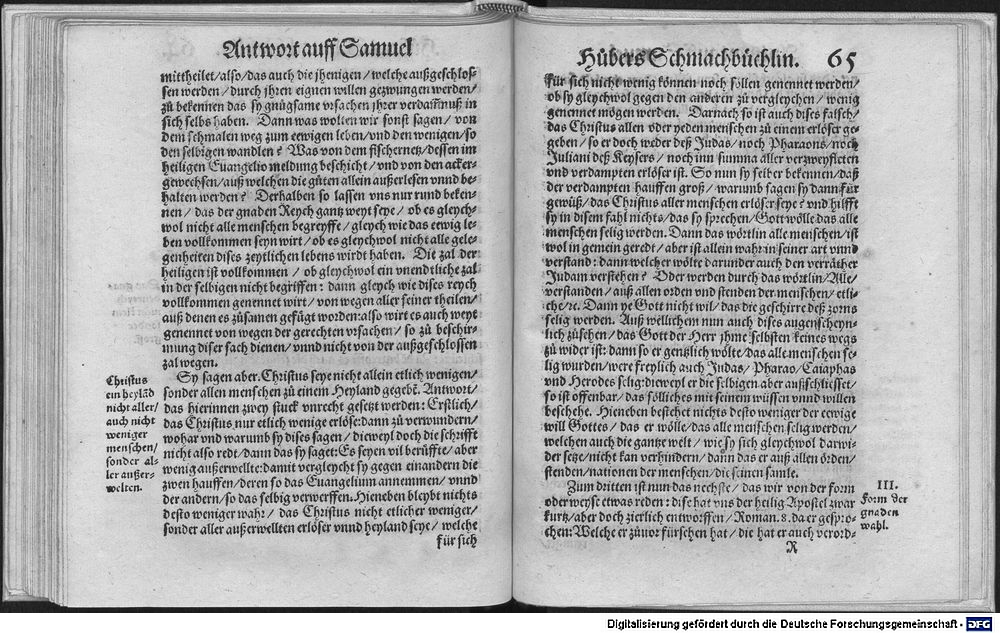 Antwort auff Samuel
mittheilet/also/das auch die jhenigen/welche außgeschlos-
sen werden/durch jhren eignen willen gezwungen werden/
zů bekennen das sy gnůgsame vrsachen jhrer verdam̃nuß in
sich selbs haben. Dann was wolten wir sonst sagen/von
dem schmalen weg zum eewigen leben/vnd den wenigen/so
den selbigen wandlen? Was von dem fischernetz/dessen im
heiligen Euangelio meldung beschicht/vnd von den acker-
gewechsen/auß welchen die gůten allein außerlesen vnnd be-
halten werden? Derhalben so lassen vns nur rund beken-
nen/das der gnaden Reych gantz weyt seye/ob es gleych-
wol nicht alle menschen begreyffe/gleych wie das eewig le-
ben vollkommen seyn wirt/ob es gleychwol nicht alle gele-
genheiten dises zeytlichen lebens wirdt haben. Die zal der
heiligen ist vollkommen/ob gleychwol ein vnendtliche zal
in der selbigen nicht begriffen: dann gleych wie dises reych
vollkommen genennet wirt/von wegen aller seiner theilen/
auß denen es zůsamen gefůgt worden: also wirt es auch weyt
genennet von wegen der gerechten vrsachen/so zů beschir-
mung diser sach dienen/vnnd nicht von der außgeschlossen
zal wegen.
Christus
ein heylãd
nicht aller/
auch nicht
weniger
menschen/
sonder al-
ler außer-
welten.
Sy sagen aber. Christus seye nicht allein etlich wenigen/
sonder allen menschen zů einem Heyland gegebẽ. Antwort/
das hierinnen zwey stuck vnrecht gesetzt werden: Erstlich/
das Christus nur etlich wenige erlöse: dann zů verwundern/
wohar vnd warumb sy dises sagen/dieweyl doch die schrifft
nicht also redt/dann das sy saget: Es seyen vil berůffte/aber
wenig außerwellte: damit vergleycht sy gegen einandern die
zwen hauffen/deren so das Euangelium annemmen/vnnd
der andern/so das selbig verwerffen. Hieneben bleybt nichts
desto weniger wahr/das Christus nicht etlicher weniger/
sonder aller außerwellten erlöser vnnd heyland seye/welche
für sich
Hůbers Schmachbüchlin. 65
für sich nicht wenig können noch söllen genennet werden/
ob sy gleychwol gegen den anderen zů vergleychen/wenig
genennet mögen werden. Darnach so ist auch dises falsch/
das Christus allen oder yeden menschen zů einem erlöser ge-
geben/so er doch weder deß Judas/noch Pharaons/noch
Juliani deß Keysers/noch inn summa aller verzweyfleten
vnd verdampten erlöser ist. So nun sy selber bekennen/daß
der verdampten hauffen groß/warumb sagen sy dann für
gewüß/das Christus aller menschen erlöser seye? vnd hilfft
sy in disem fahl nichts/das sy sprechen/Gott wölle das alle
menschen selig werden. Dann das wörtlin alle menschen/ist
wol in gemein geredt/aber ist allein wahr in seiner art vnnd
verstand: dann welcher wölte darunder auch den verräther
Judam verstehen? Oder werden durch das wörtlin/Alle/
verstanden/auß allen orden vnd stenden der menschen/etli-
che/ꝛc. Dann ye Gott nicht wil/das die geschirre deß zorns
selig werden. Auß wöllichem nun auch dises augenscheyn-
lich zůsehen/das Gott der Herr jhme selbsten keines wegs
zů wider ist: dann so er gentzlich wölte/das alle menschen se-
lig wurden/were freylich auch Judas/Pharao/Caiaphas
vnd Herodes selig: dieweyl er die selbigen aber außschliesset/
so ist offenbar/das söllliches mit seinem wüssen vnnd willen
beschehe. Hieneben bestehet nichts desto weniger der eewige
will Gottes/das er wölle/das alle menschen selig werden/
welchen auch die gantze welt/wie sy sich gleychwol darwi-
der setze/nicht kan verhindern/dañ das er auß allen örden/
stenden/nationen der menschen/die seinen samle.
Zum dritten ist nun das nechste/das wir von der form
oder weyse etwas reden: dise hat vns der heilig Apostel zwar
kurtz/aber doch zierlich entworffen/Roman. 8. da er gespro-
chen: Welche er zůuor fürsehen hat/die hat er auch verord-
III.
Form der
gnaden
wahl.
R
Digitalisierung gefördert durch die Deutsche Forschungsgemeinschaft - DFG